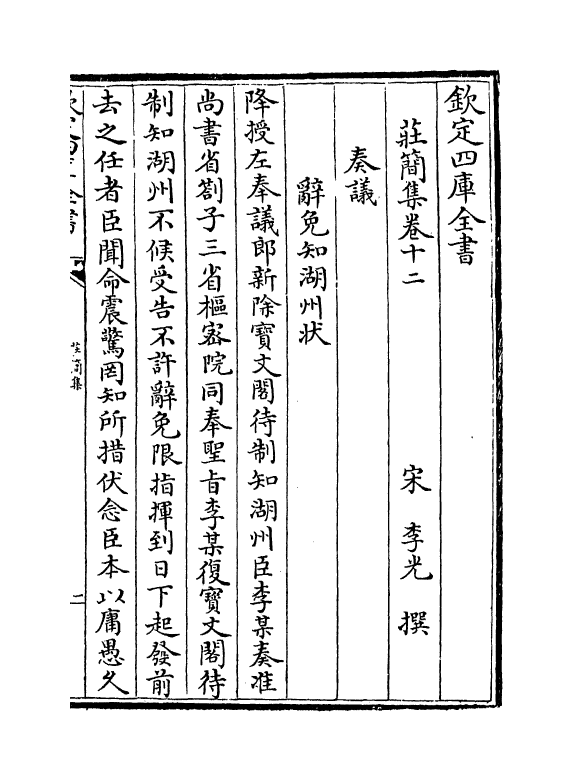 欽定四庫全書
莊簡集卷十二
宋 李光 撰
奏議
辭免知湖州狀
降授左奉議郎新除寶文閣待制知湖州臣李某奏准
尚書省劄子三省樞密院同奉聖旨李某復寶文閣待
制知湖州不候受告不許辭免限指揮到日下起發前
去之任者臣聞命震驚罔知所措伏念臣本以庸愚久
莊簡集